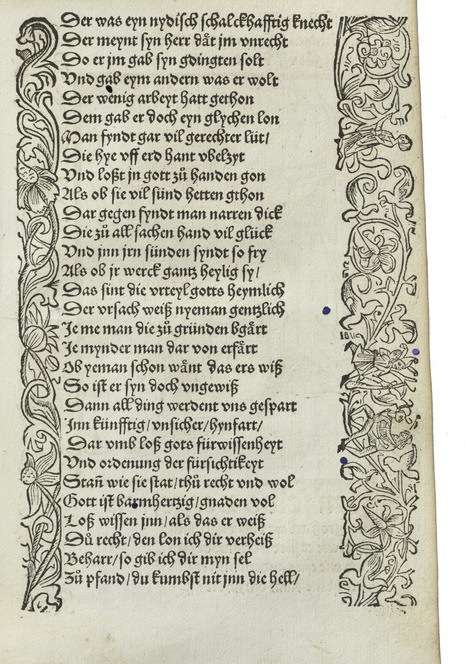 Der was eyn nydisch schalckhafftig knecht
Der meynt syn herr dåt jm vnrecht
Do er jm gab syn gdingten solt
Vnd gab eym andern was er wolt
Der wenig arbeyt hatt gethon
Dem gab er doch eyn glychen lon
Man fyndt gar vil gerechter lüt/
Die hye vff erd hant vbelzyt
Vnd loßt jn gott zů handen gon
Als ob sie vil sünd hetten gthon
Dar gegen fyndt man narren dick
Die zů all sachen hand vil glück
Vnd jnn jrn sünden syndt so fry
Als ob jr werck gantz heylig sy/
Das sint die vrteyl gotts heymlich
Der vrsach weiß nyeman gentzlich
Je me man die zů gründen bgårt
Je mynder man dar von erfårt
Ob yeman schon wånt das ers wiß
So ist er syn doch vngewiß
Dann all ding werdent vns gespart
Jnn künfftig/vnsicher/hynfart/
Dar vmb loß gots fürwissenheyt
Vnd ordenung der fürsichtikeyt
Stan̄ wie sie stat/thů recht vnd wol
Gott ist barmhertzig/gnaden vol
Loß wissen jnn/als das er weiß
Dů recht/den lon ich dir verheiß
Beharr/so gib ich dir myn sel
Zů pfand/du kumbst nit jnn die hell/